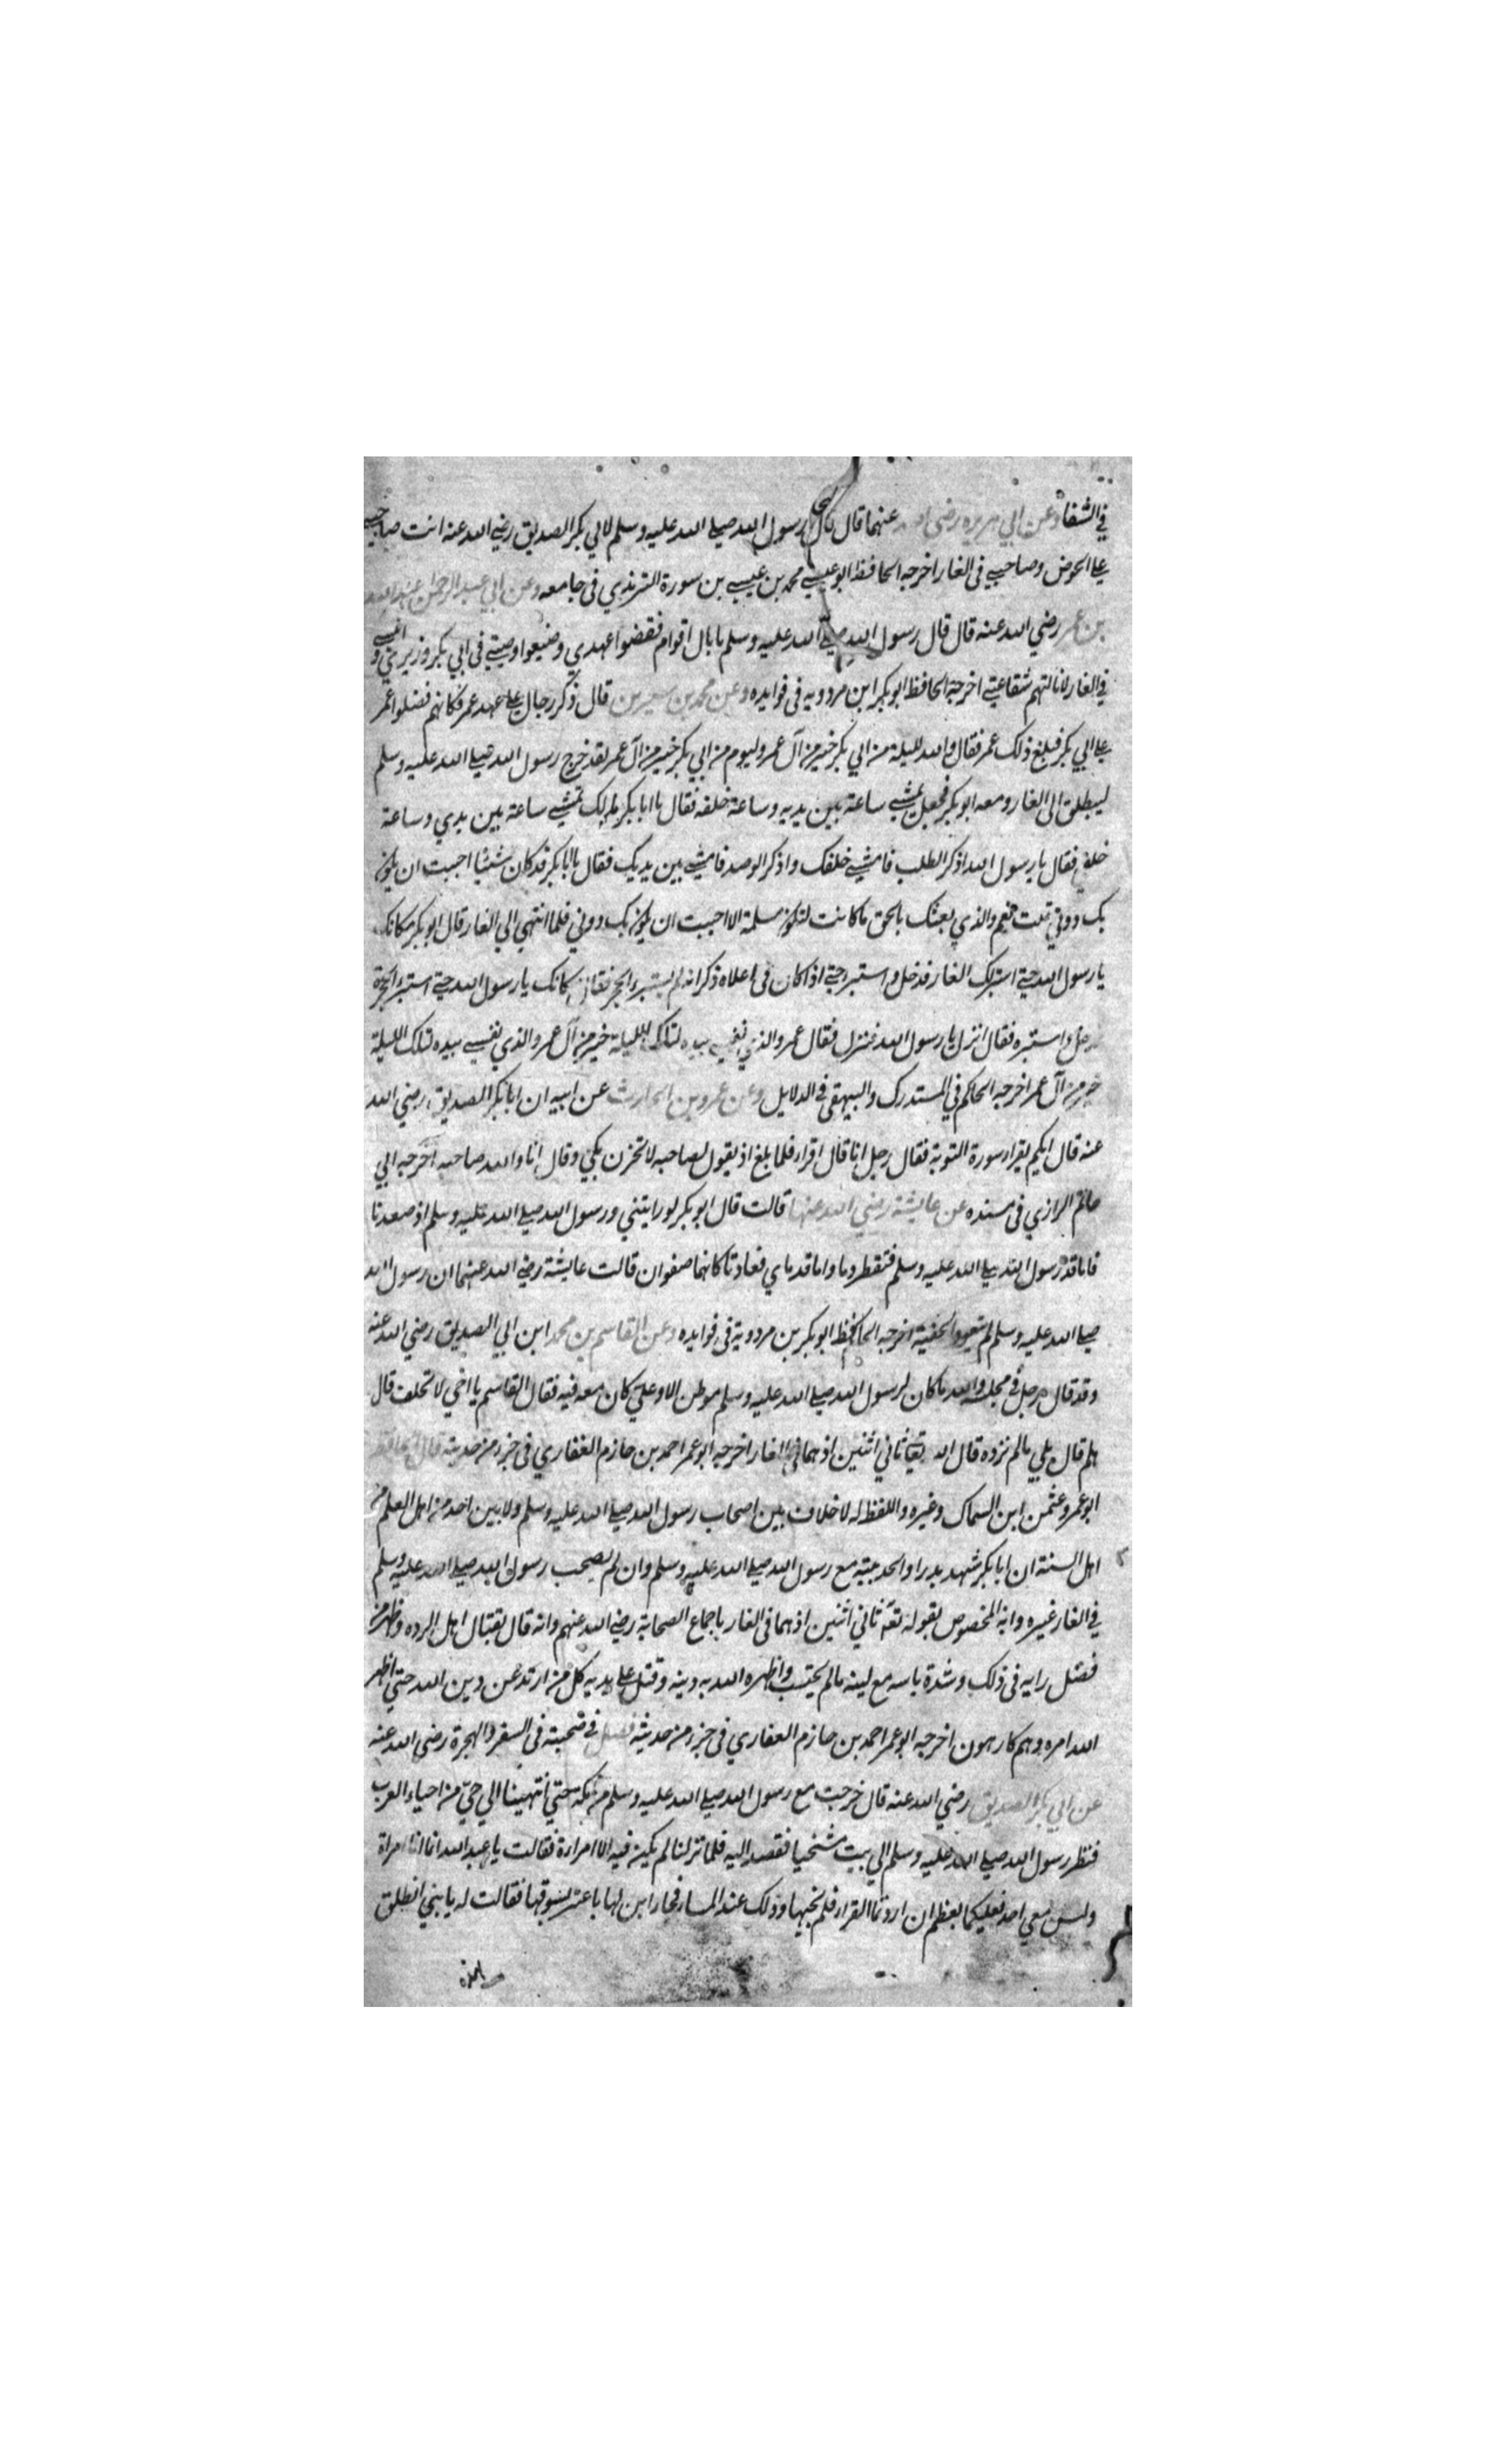 في الشفا وعن ابي هريرة رضي الله عنهما قال قال رسول الله صلى الله عليه وسلم لابي بكر الصديق رضي الله عنه انت صاحبي
على الحوض وصاحبي في الغار اخرجه الحافظ ابو عيسى محمد بن عيسى بن سورة الترمذي في جامعه وعن ابي عبد الرحمن عبد الله
بن عمر رضي الله عنه قال قال رسول الله صلى الله عليه وسلم ما بال اقوام نقضوا عهدي وضيعوا وصيتي في ابي بكر وزيري و انيسي
في الغار لا نالتهم شفاعتي اخرجه الحافظ ابو بكر ابن مردويه في فوايده وعن محمد بن سيرين قال ذكر رجال على عهد عمر فكانهم فضلوا عمر
على ابي بكر فبلغ ذلك عمر فقال والله لليلة من ابي بكر خير من آل عمر وليوم من ابي بكر خير من آل عمر لقد خرج رسول الله صلى الله عليه وسلم
لينطلق الى الغار ومعه ابو بكر فجعل يمشي ساعة بين يديه وساعة خلفه فقال يا ابا بكر مالك تمشي ساعة بين يدي وساعة
خلفي فقال يا رسول الله اذكر الطلب فامشي خلفك واذكر الرصد فامشي بين يديك فقال يا ابا بكر قد كان شئيا احببت ان يكون
بك دوني قلت نعم والذي بعثك بالحق ما كانت لتكون ملمة الا احببت ان يكون بك دوني فلما انتهي الي الغار قال ابو بكر مكانك
يا رسول الله حتى استبرك الغار فدخل واستبر حتى اذا كان في اعلاه ذكر انه لم يستبرء الحجر فقال مكانك يا رسول الله حتى استبرء الحجرة
فدخل واستبره فقال انزل يا رسول الله فنزل فقال عمر والذي نفسي بيده لتلك الليلة خير من آل عمر والذي نفسي بيده لتلك الليلة
خير من آل عمر اخرجه الحاكم في المستدرك والبيهقي في الدلايل وعن عمرو بن الحارث عن ابيه ان ابا بكر الصديق رضي الله
عنه قال ايكم يقرا سورة التوبة فقال رجل انا قال اقرا فلما بلغ اذ يقول لصاحبه لا تحزن بكي وقال انا والله صاحبه اخرجه ابي
حاتم الرازي في مسنده عن عايشة رضي الله عنها قالت قال ابو بكر لو رايتني ورسول الله صلى الله عليه وسلم اذ صعدنا
فاما قد رسول الله صلى الله عليه وسلم فتقطر دما واما قدماي فعادتا كانهما صفوان قالت عايشة رضي الله عنهما ان رسول الله
صلى الله عليه وسلم لم يتعود الحفية اخرجه الحافظ ابو بكر بن مردوية في فوايده وعن القاسم بن محمد ابن ابي الصديق رضي الله عنه
وقد قال رجل في مجلسه والله ما كان لرسول الله صلى الله عليه وسلم موطن الا وعلي كان معه فيه فقال القاسم يا اخي لا تحلف قال
هلم قال بلي مالم نزده قال الله تعالى ثاني اثنين اذ هما في الغار اخرجه ابو عمر احمد بن حازم الغفاري في جزء من حديثه قال الحافظ
ابو عمرو عثمن ابن السماك وغيره واللفظ له لا خلاف بين اصحاب رسول الله صلى الله عليه وسلم ولا بين احد من اهل العلم من
اهل السنة ان ابا بكر شهد بدرا والحديبية مع رسول الله صلى الله عليه وسلم وان لم يصحب رسول الله صلى الله عليه وسلم
في الغار غيره وانه المخصوص بقوله تعه ثاني اثنين اذ هما في الغار باجماع الصحابة رضي الله عنهم وانه قال بقتال اهل الرده وظهر من
فضل رايه في ذلك وشدة باسه مع لينه مالم يحتسب واظهره الله به دينه وقتل على يديه كل من ارتد عن دين الله حتي اظهر
الله امره وهم كارهون اخرجه ابو عمر احمد بن حازم الغفاري في جزء من حديثه فصل في صحبته في السفر والهجرة رضي الله عنه
عن ابي بكر الصديق رضي الله عنه قال خرجت مع رسول الله صلى الله عليه وسلم من مكة حتي انتهينا الي حي من احياء العرب
فنظر رسول الله صلى الله عليه وسلم الي بيت متنحيا فقصد اليه فلما نزلنا لم يكن فيه الا امراءة فقالت يا عبد الله انما انا امراة
وليس معي احد فعليكما بعظم ان اردتما القرا فلم يجبها وذلك عند المسا فجاء ابن لها باعنز يسوقها فقالت له يا بني انطلق
بهذه